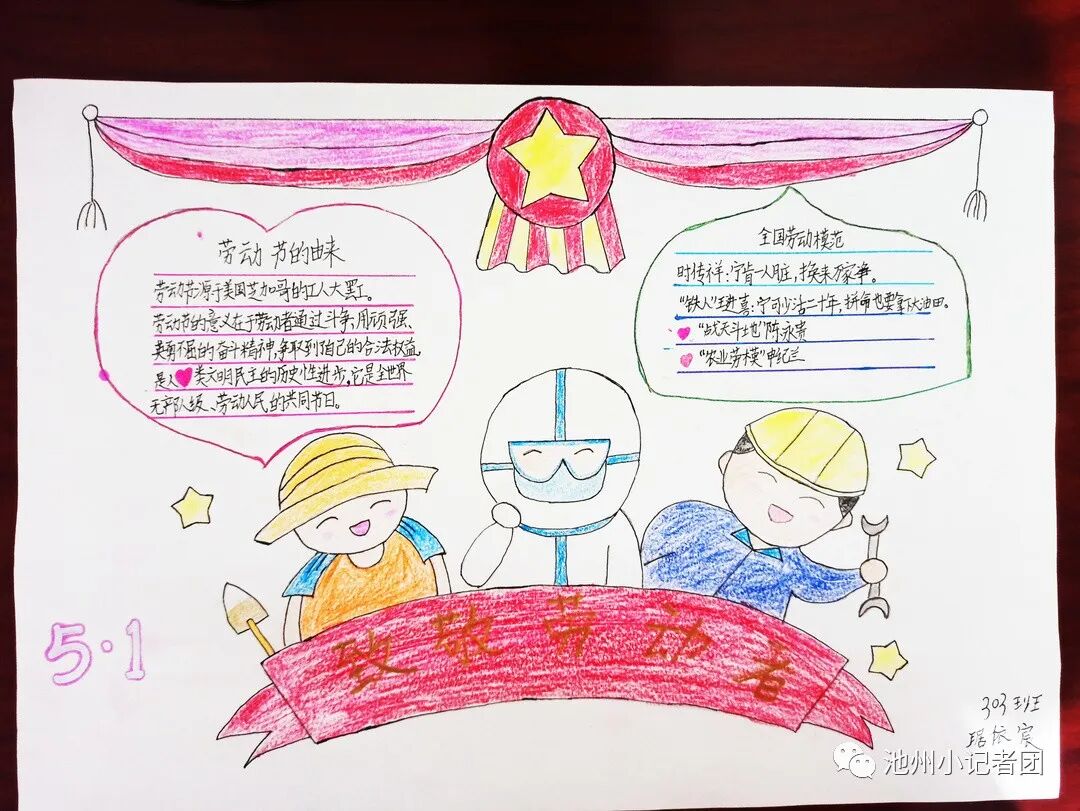 劳动节的由来
劳动节源于美国芝加哥的工人大罢工。
劳动节的意义在于劳动者通过斗争,用顽强、
英勇不屈的奋斗精神,争取到自己的合法权益,
是人类文明民主的历史性进步,它是全世界
无产阶级、劳动人民的共同节日。
全国劳动模范
时传祥:宁肯一人脏,换来万家净。
"铁人"王进喜:宁可少活二十年,拼命也要拿下大油田。
"战天斗地"陈永贵
"农业劳模"申纪兰
5·1
致敬劳动者
303班
依宸
池州小记者团